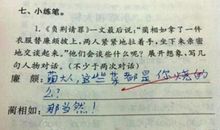 七、小练笔。
1.《负荆请罪》一文最后说:“蔺相如拿了一件
衣服替廉颇披上,两人紧紧地拉着手,坐下来亲密
地交谈起来。”他们会谈些什么呢?展开想象,写几
句人物对话。(不少于两次对话)
廉 颇:蔺大人,这些菜都是你烧的
么?
蔺相如:那当然!